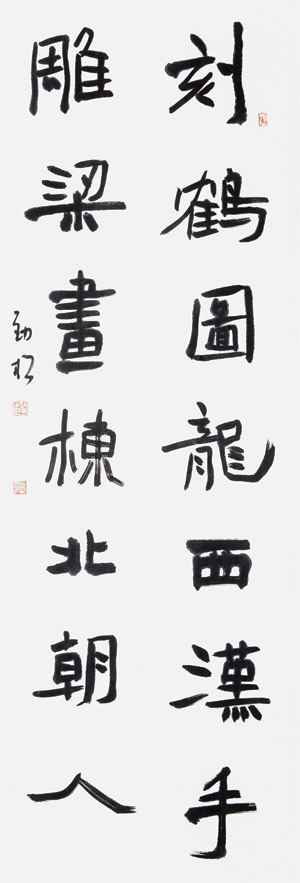 刻鶴圖龍西漢手
雕梁畫棟北朝人
勁松